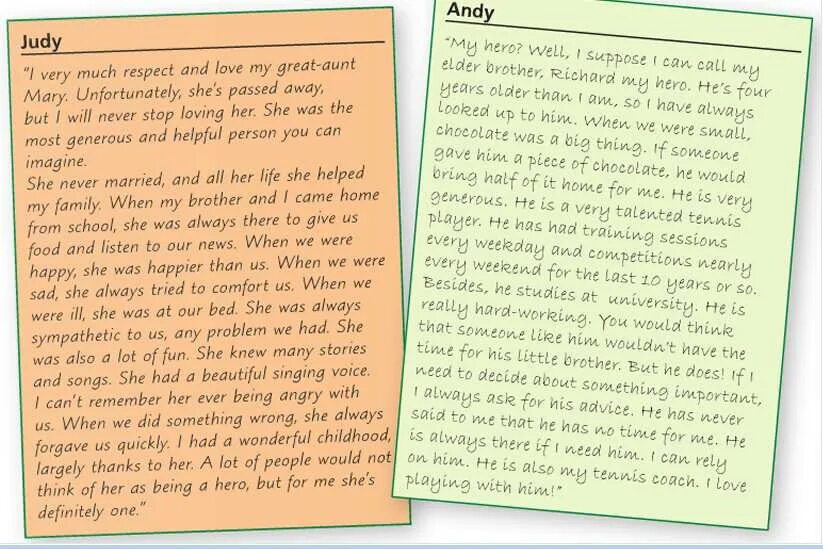 Judy
"I very much respect and love my great-aunt
Mary. Unfortunately, she's passed away,
but I will never stop loving her. She was the
most generous and helpful person you can
imagine.
She never married, and all her life she helped
my family. When my brother and I came home
from school, she was always there to give us
food and listen to our news. When we were
happy, she was happier than us. When we were
sad, she always tried to comfort us. When we
were ill, she was at our bed. She was always
sympathetic to us, any problem we had. She
was also a lot of fun. She knew many stories
and songs. She had a beautiful singing voice.
I can't remember her ever being angry with
us. When we did something wrong, she always
forgave us quickly. I had a wonderful childhood,
largely thanks to her. A lot of people would not
think of her as being a hero, but for me she's
definitely one."
Andy
"My hero? Well, I suppose I can call my
elder brother, Richard my hero. He's four
years older than I am, so I have always
looked up to him. When we were small,
chocolate was a big thing. If someone
gave him a piece of chocolate, he would
bring half of it home for me. He is very
generous. He is a very talented tennis
player. He has had training sessions
every weekday and competitions nearly
every weekend for the last 10 years or so.
Besides, he studies at university. He is
really hard-working. You would think
that someone like him wouldn't have the
time for his little brother. But he does! If I
need to decide about something important,
I always ask for his advice. He has never
said to me that he has no time for me. He
is always there if I need him. I can rely
on him. He is also my tennis coach. I love
playing with him!"